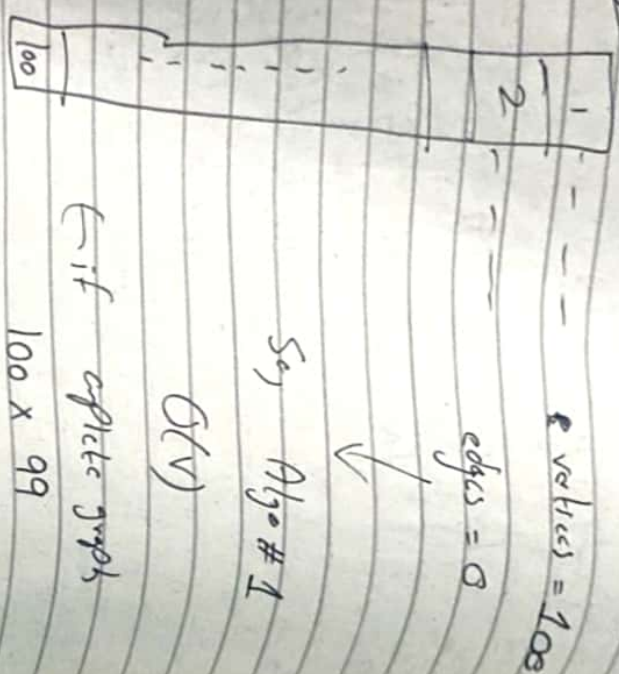 1
2
100
vertices = 100
edges = 0
So, Algo # 1
O(V)
if complete graph
100 x 99